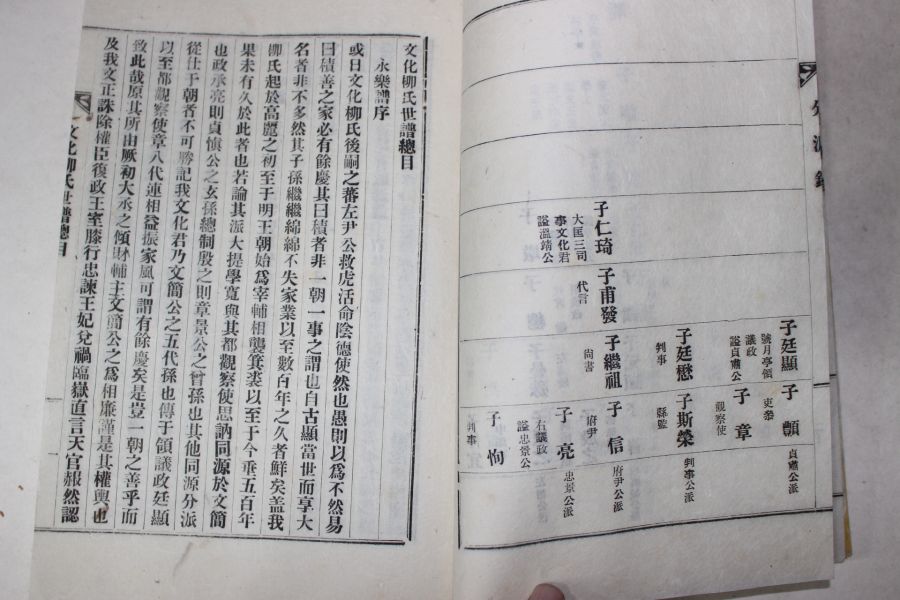 子廷顯
號月亭領
議政
諡貞肅公
子顗
吏參
貞肅公派
子章
觀察使
子廷懋
判事
子斯榮
縣監
判事公派
子仁琦
大匡三司
事文化君
諡溫靖公
子甫發
代言
子繼祖
尙書
子信
府尹
府尹公派
子亮
右議政
諡忠景公
忠景公派
子恂
判事
文化柳氏世譜總目
永樂譜序
或曰文化柳氏後嗣之蕃左尹公救虎活命陰德使然也愚則以爲不然易
曰積善之家必有餘慶其曰積者非一朝一事之謂也自古顯當世而享大
名者非不多然其子孫繼繼綿綿不失家業以至數百年之久者鮮矣盖我
柳氏起於高麗之初至于明王朝始爲宰輔相襲箕裘以至于今垂五百年
果未有久於此者也若論其派大提學寬與其都觀察使思訥同源於文簡
也政丞亮則貞愼公之玄孫總制殷之則章景公之曾孫也其他同源分派
從仕于朝者不可勝記我文化君乃文簡公之五代孫也傳于領議政廷顯
以至都觀察使章八代連相益振家風可謂有餘慶矣是豈一朝之善乎而
致此哉原其所由厥初大丞之傾財輔主文簡公之爲相廉謹是其權輿也
及我文正誅除權臣復政王室膝行忠諫王妃兌禍臨嶽直言天官赧然認
文化柳氏世譜總目